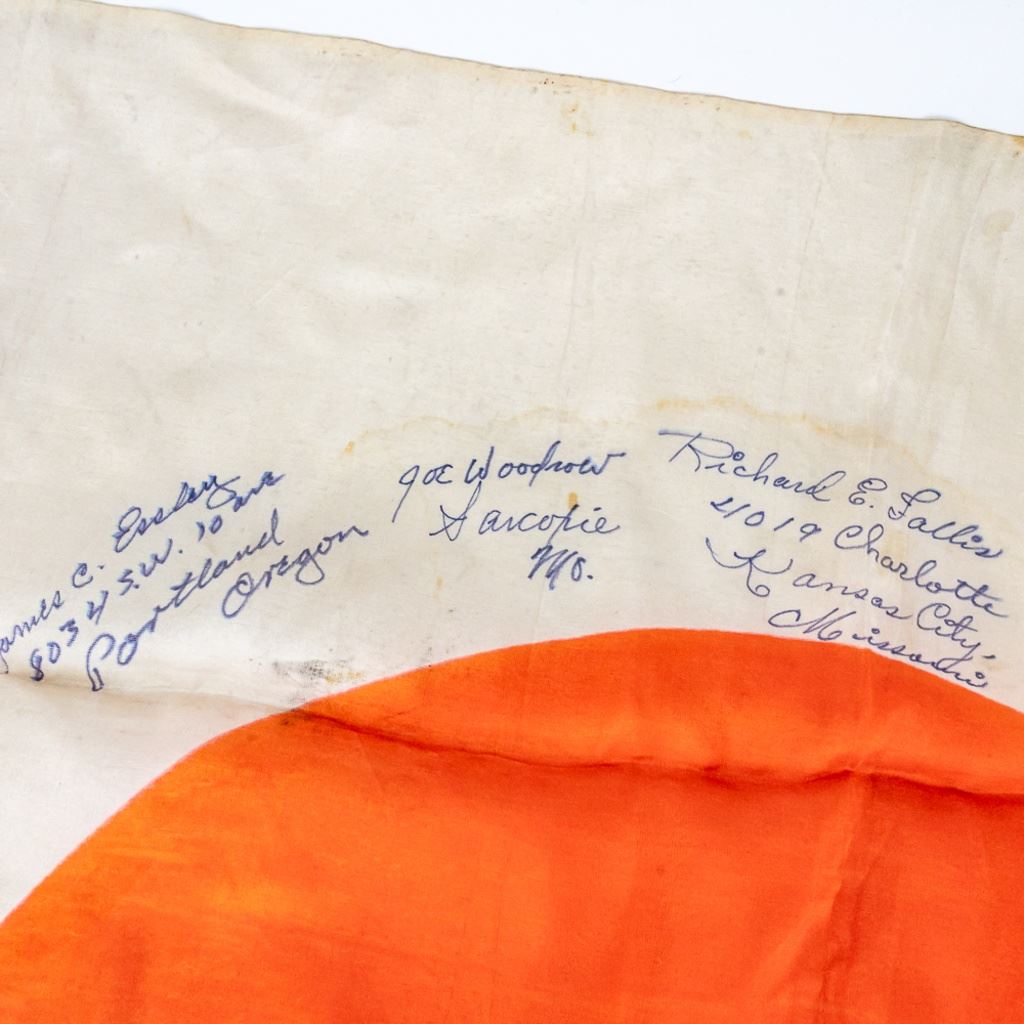 James C. Essley
8034 S.W. 10 ave
Portland
Oregon
Joe Woodrow
Sarcopie
Mo.
Richard E. Fallis
4019 Charlotte
Kansas City,
Missouri